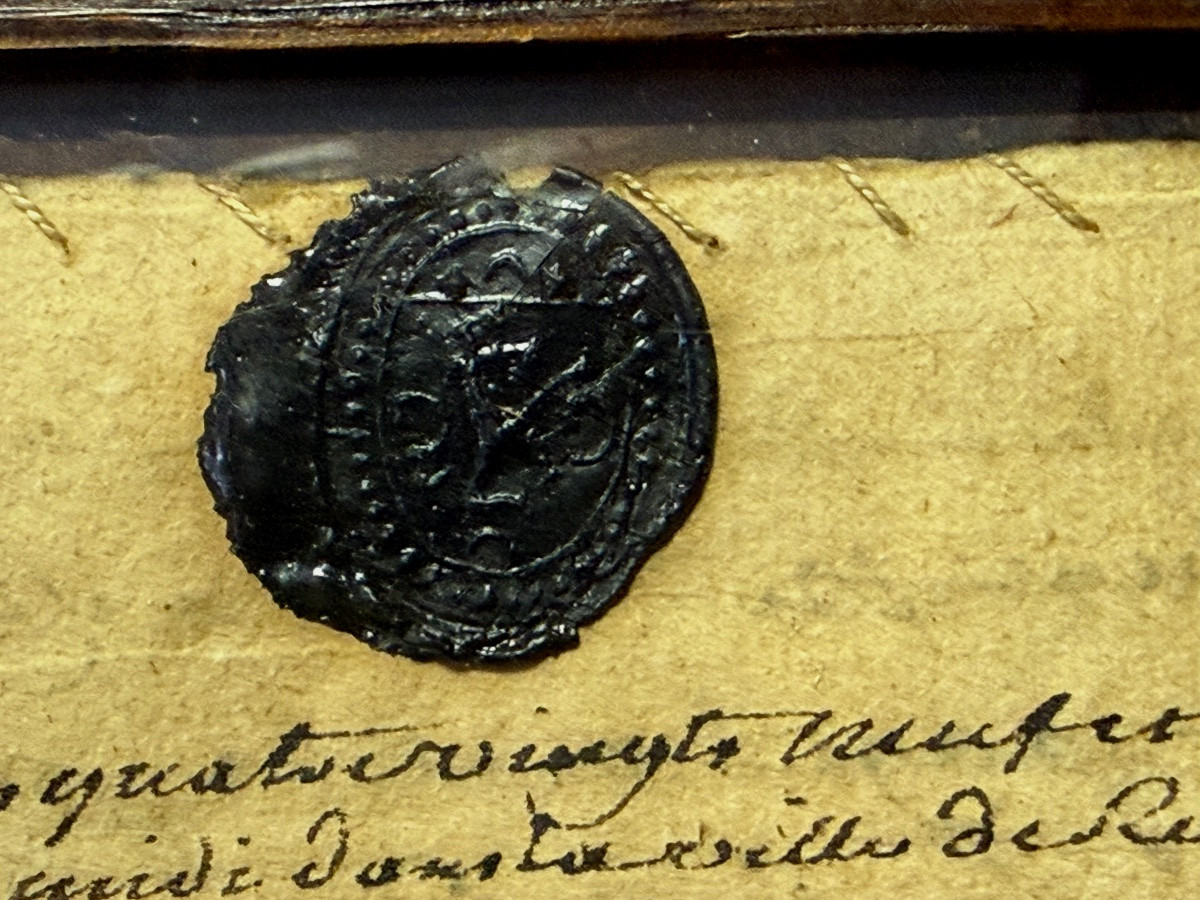 quatrevingts neuf et
midi dans la ville de